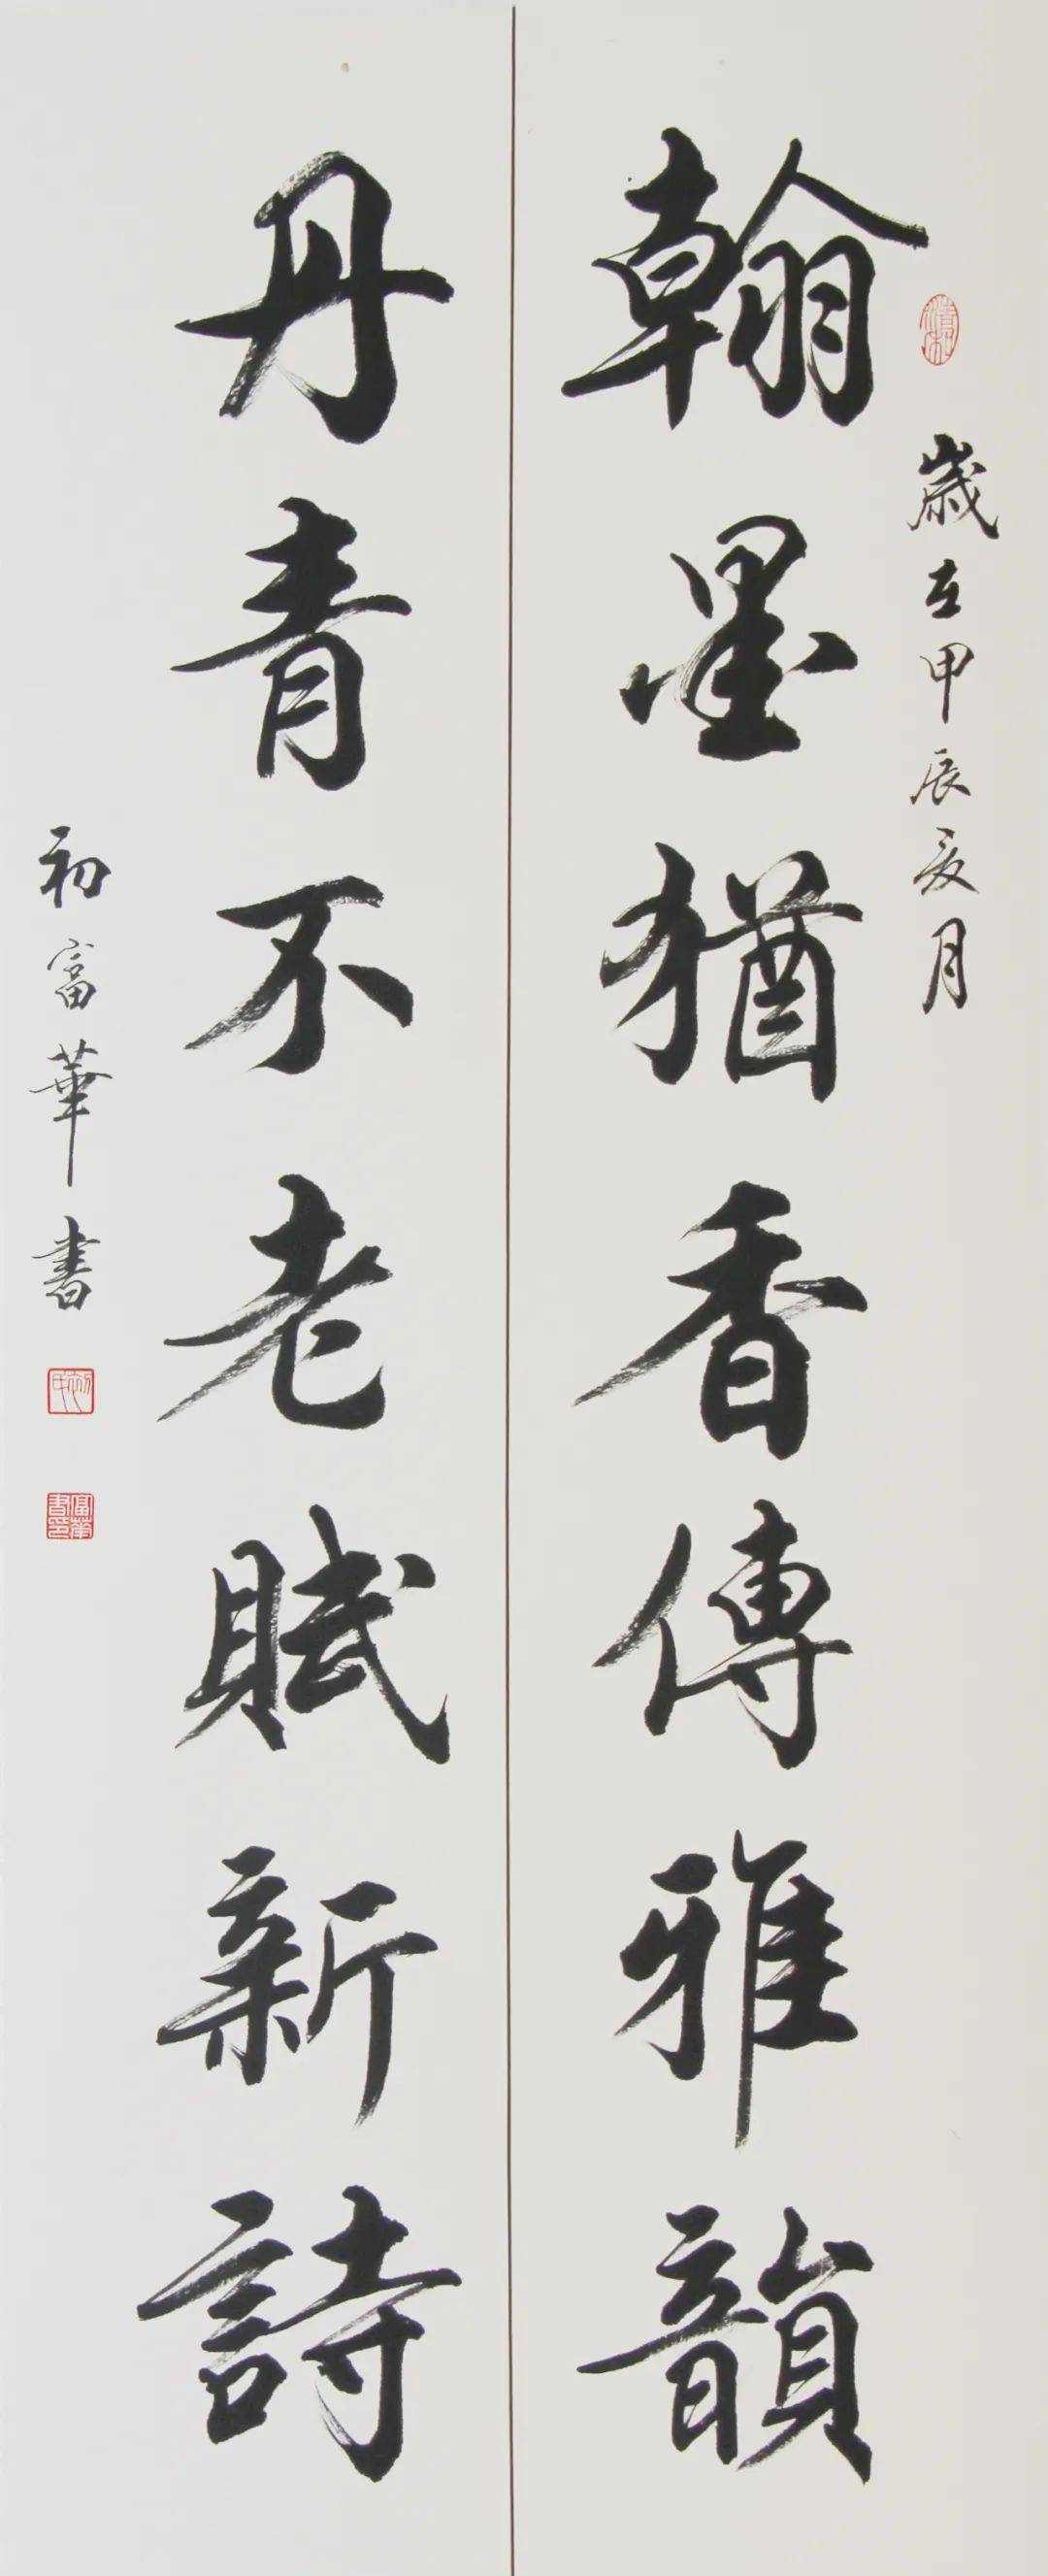 歲在甲辰夏月
翰墨猶香傳雅韻
丹青不老賦新詩
初富華書